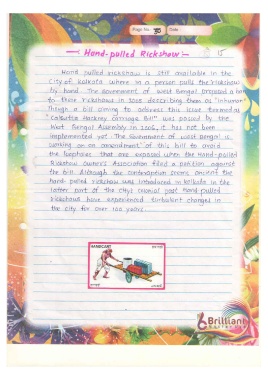 Page No. 35 Date
Hand-pulled Rickshaw
15
Hand pulled rickshaw is still available in the
city of Kolkata where in a person pulls the rickshaw
by hand. The Government of West Bengal proposed a ban
to these rickshaws in 2005 describing them as "inhuman"
Though a bill aiming to address this issue termed as
"Calcutta Hackney Carriage Bill" was passed by the
West Bengal Assembly in 2006, it has not been
implemented yet. The Government of West Bengal is
working on an amendment of this bill to avoid
the loopholes that are exposed when the Hand-pulled
Rickshaw owner's Association filed a petition against
the bill Although the
hand-pulled rickshaw was introduced in Kolkata in the
latter part of the city's colonial past hand pulled
rickshaws have experienced turbulent changes in
the city for over 100 years.
HANDCART
Brilliant